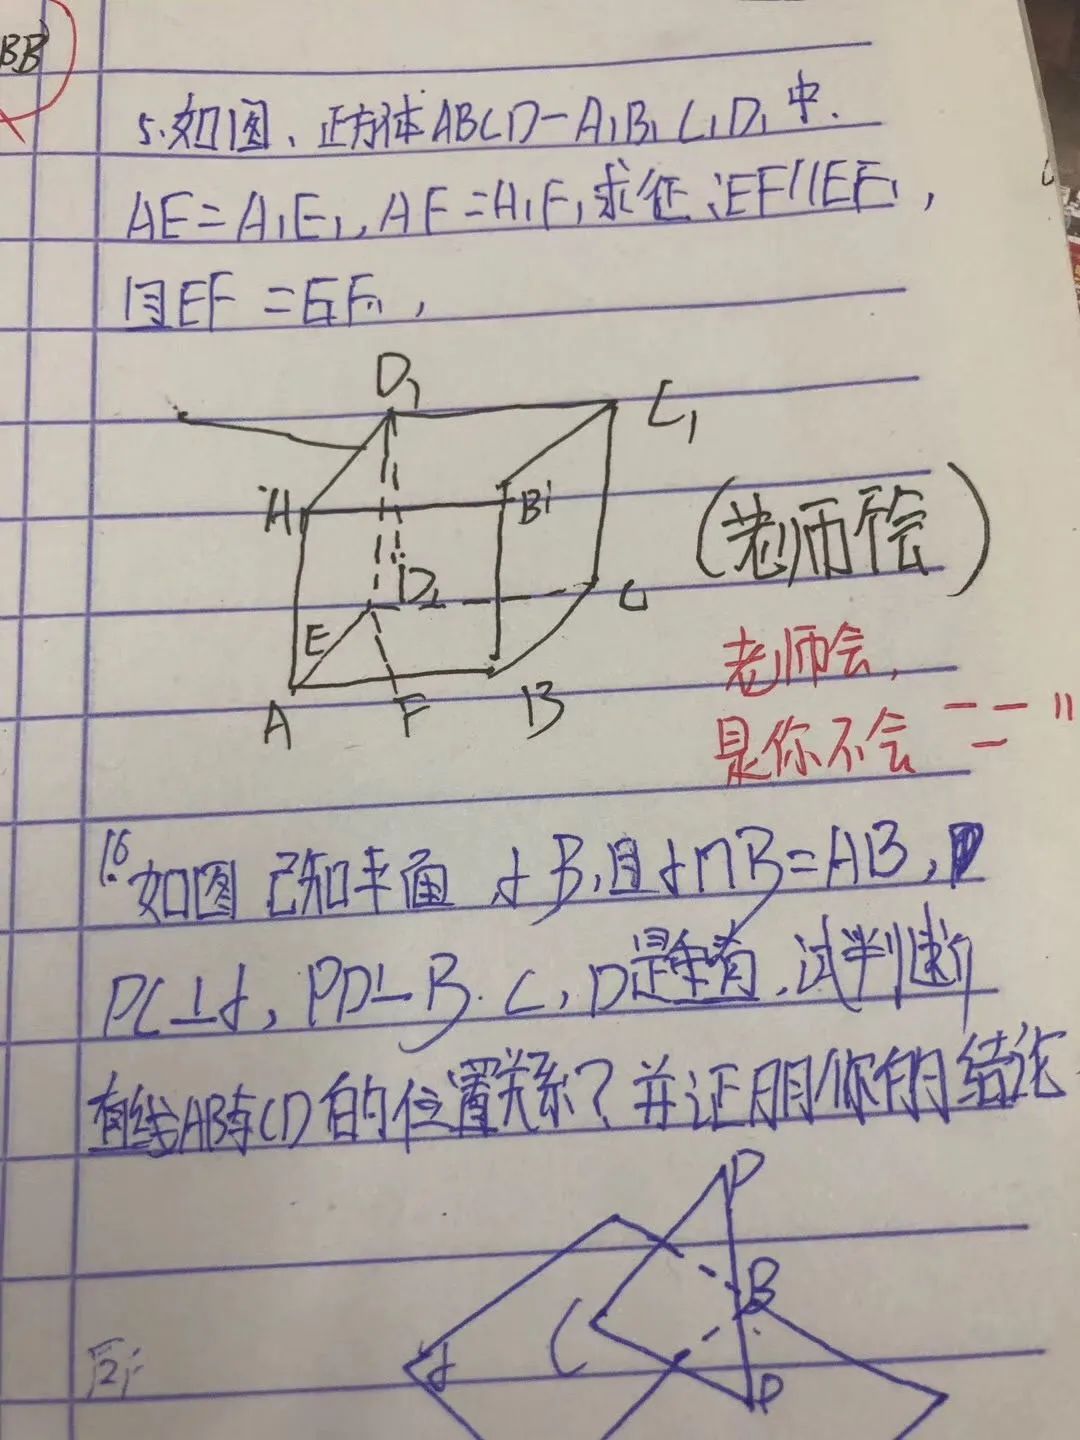 BB
5.如图、正方体ABCD-A₁B₁C₁D₁中.
AE=A₁E₁,AF=A₁F₁求征:EF∥EF₁,
且EF=EF₁,
D₁
C₁
A₁
B₁
(老师不会)
D₂
C
E
A
F
B
老师会,
是你不会
16.如图 已知平面 α B,且α∩B=AB,
PC⊥α, PD⊥B. C,D是垂有,试判断
直线AB与CD的位置关系?并证明你的结论
P
B
C
α
P